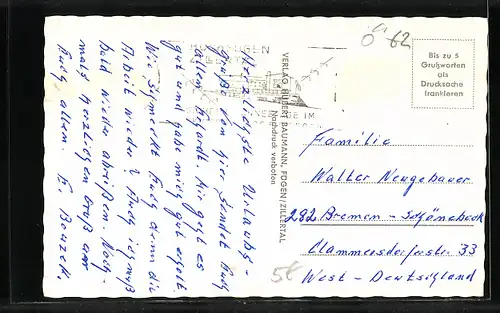 Herzlichste Urlaubs-
grüße von hier sendet Euch
allen Erhardt. Mir geht es
gut und habe mich gut erholt
Wie schmeckt Euch denn die
Arbeit wieder? Auch ich muß
bald wieder abreisen. Noch-
mals herzlichen Gruß an
Euch allen. E.
VERLAG HUBERT BAUMANN, FÜGEN/ZILLERTAL
Nachdruck verboten
62
Bis zu 5
Grußworten
als
Drucksache
frankieren
Familie
Walter Neugebauer
282 Bremen-Schönebeck
Clammersdorferstr. 33
West-Deutschland
5€